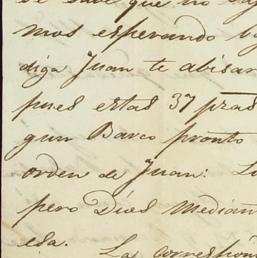 se save que no
mos esperando
diga Juan te abisar
pues estas 37 pzas
gun Barco pronto
orden de Juan: Lo
pero Dios median
esa.
La corresp